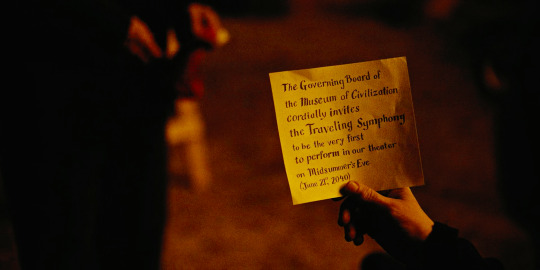 The Governing Board of
the Museum of Civilization
cordially invites
the Traveling Symphony
to be the very first
to perform in our theater
on Midsummer's Eve
(June 21, 2040)